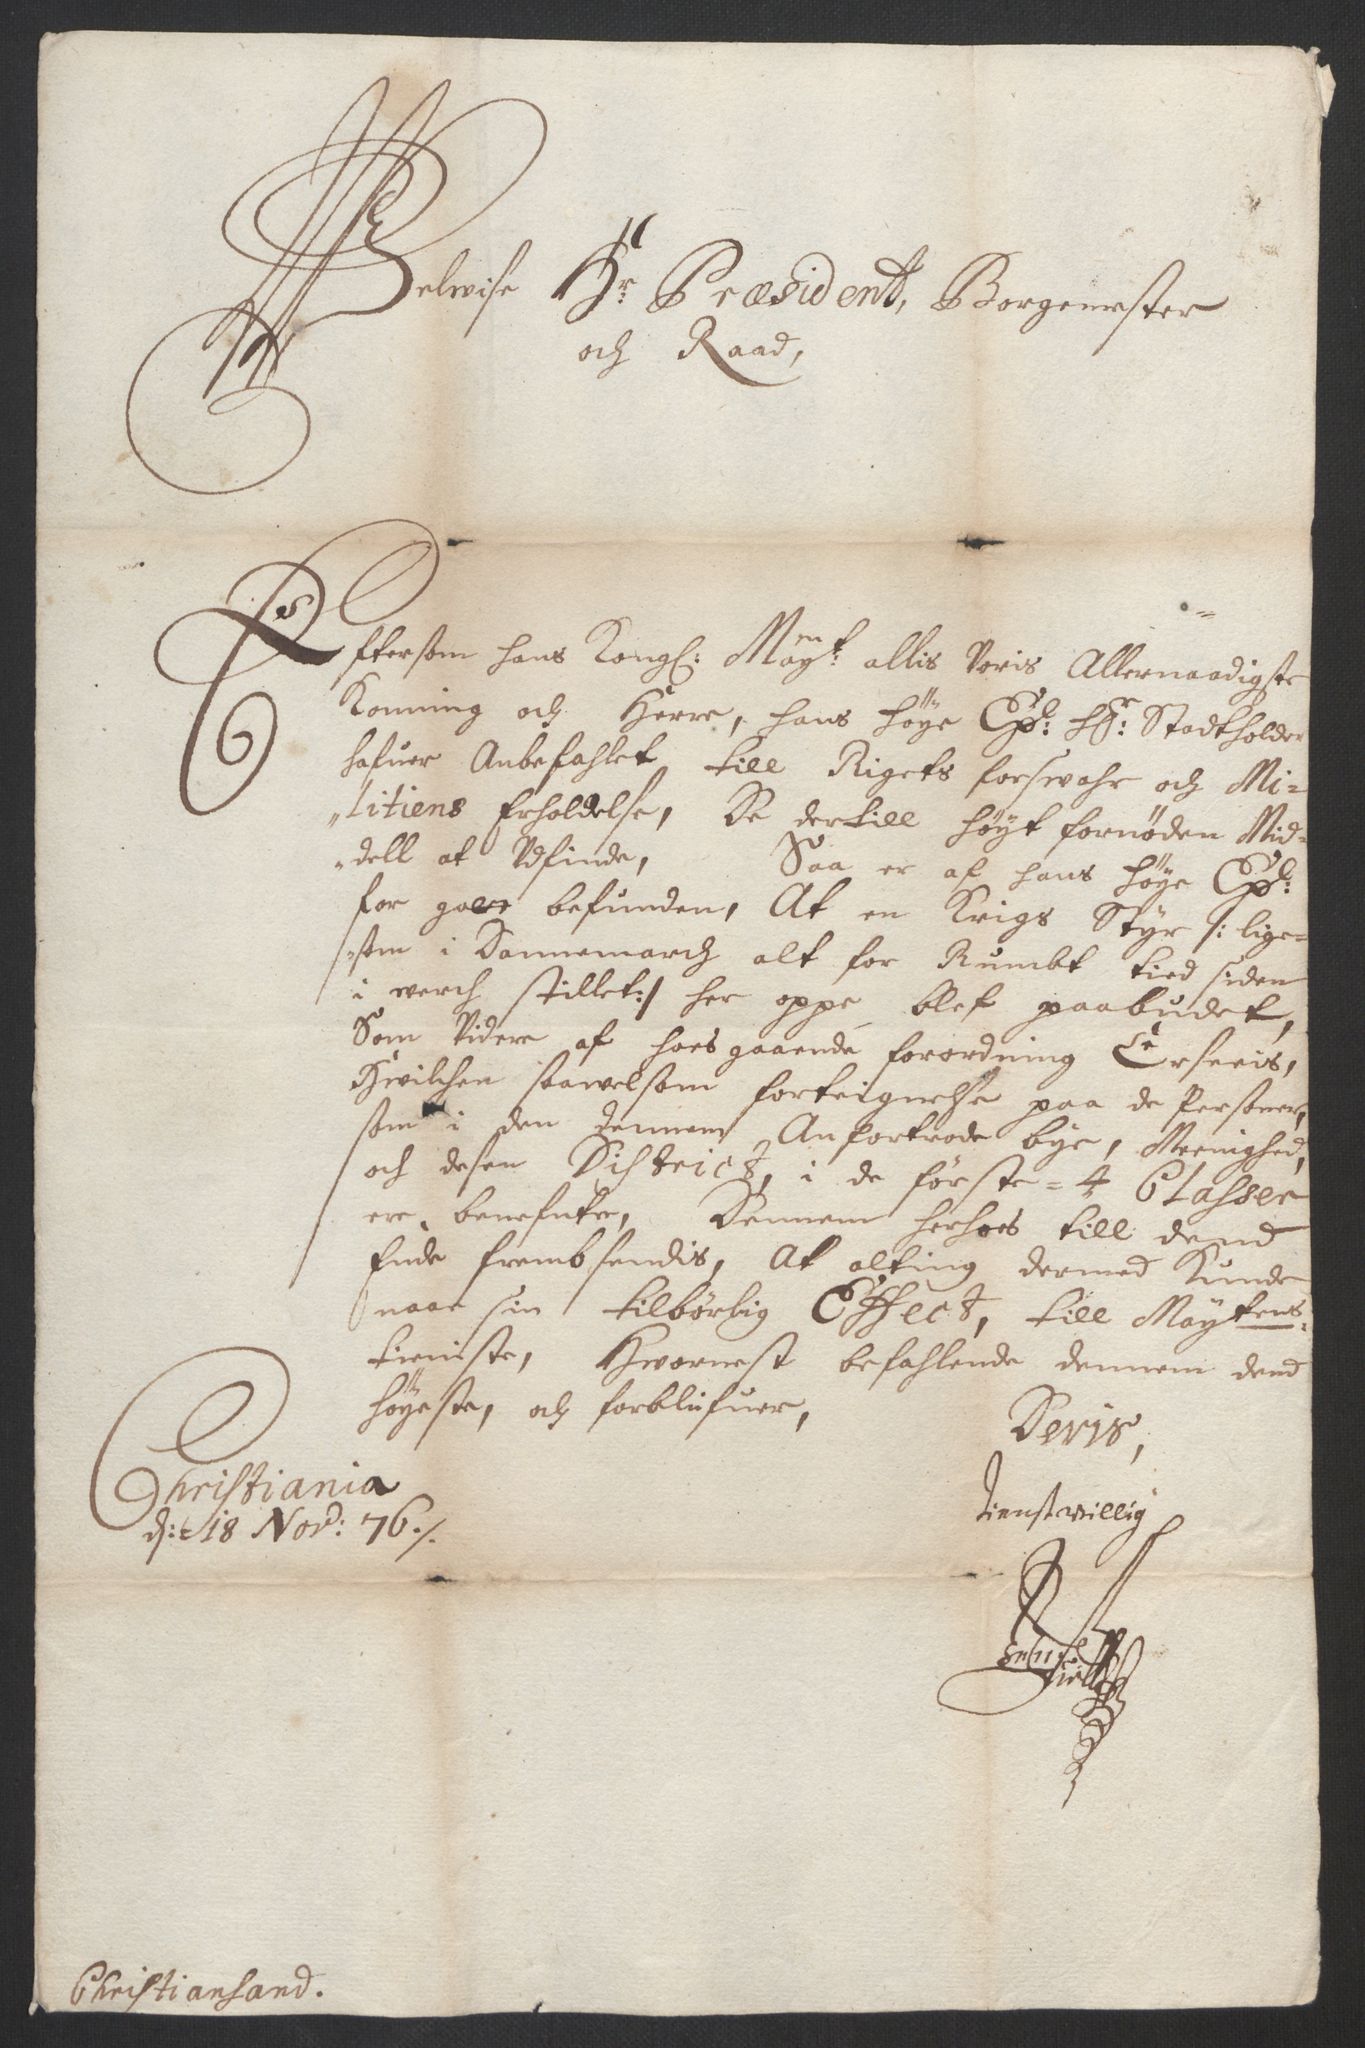 Welwise Hr: Præsident, Borgemester
och Raad,
Eftersom hans Kongl: Maÿt: allis Voris Allernaadigste
Konning och Herre, hans høÿe Expl: Hr: Stadtholder
hafuer Anbefahlet till Rigets forswahr och Mi-
litiens Erholdelse, De dertill høÿt fornøden Mid-
dell at Vdfinde, Saa er af hans høÿe Expl:
for got befunden, At en Krigs Styr /: lige-
som i Dannemarch alt for Rumbt tied siden
i werch stillet:/ her oppe blef paabudet,
Som Videre af hoesgaaende forordning Erseeis,
Hwilchen saawelsom forteignelse paa de Personer,
som i den dennem Anfortrode bye, Meenighed,
och desen District, i de første = 4 Classer
ere benefnte, Dennem herhoes till dend
Ende frembsendis, At alting dermed Kunde
naae sin tilbørlig Effect, till Maÿtens
tieniste, Hwornest befahlende dennem dend
høÿeste, och forblifuer,
Deris,
tienstwillig
Christiania
d: 18 Nov: 76./.
Christiansand.